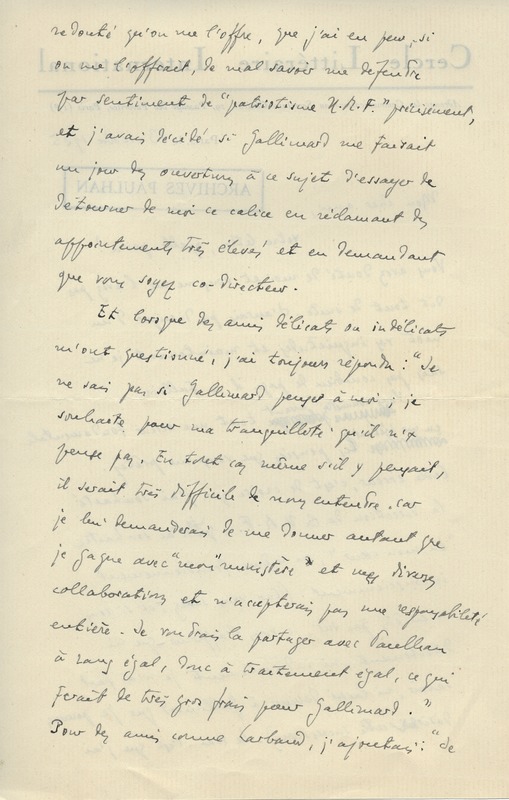 redouté qu'on me l'offre, que j'ai eu peur, si
on me l'offrait, de mal savoir me défendre
par sentiment de "patriotisme N.R.F." précisément,
et j'avais décidé si Gallimard me faisait
un jour des ouvertures à ce sujet d'essayer de
détourner de moi ce calice en réclamant des
appointements très élevés et en demandant
que vous soyez co-directeur.
Et lorsque des amis délicats ou indélicats
m'ont questionné, j'ai toujours répondu : "Je
ne sais pas si Gallimard pense à moi ; je
souhaite pour ma tranquillité qu'il n'y
pense pas. En tout cas même s'il y pensait,
il serait très difficile de nous entendre. car
je lui demanderais de me donner autant que
je gagne avec "mon" ministère" et mes diverses
collaborations et n'accepterais pas une responsabilité
entière. Je voudrais la partager avec Paulhan
à rang égal, donc à traitement égal, ce qui
ferait de très gros frais pour Gallimard."
Pour des amis comme Larbaud, j'ajoutais : "Je
Cercle Littéraire International
ARCHIVES PAULHAN